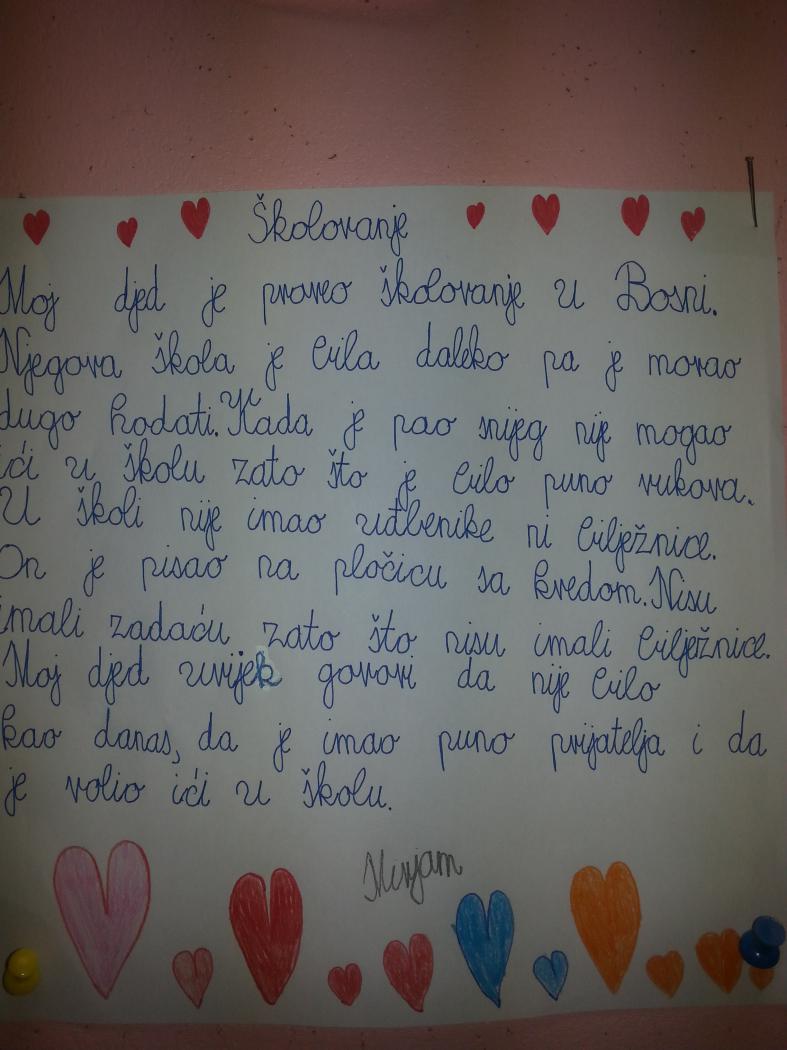 Školovanje
Moj djed je proveo školovanje u Bosni.
Njegova škola je bila daleko pa je morao
dugo hodati. Kada je pao snijeg nije mogao
ići u školu zato što je bilo puno vukova.
U školi nije imao udbenike ni bilježnice.
On je pisao na pločicu sa kredom. Nisu
imali zadaću zato što nisu imali bilježnice.
Moj djed uvijek govori da nije bilo
kao danas, da je imao puno prijatelja i da
je volio ići u školu.
Mirjam